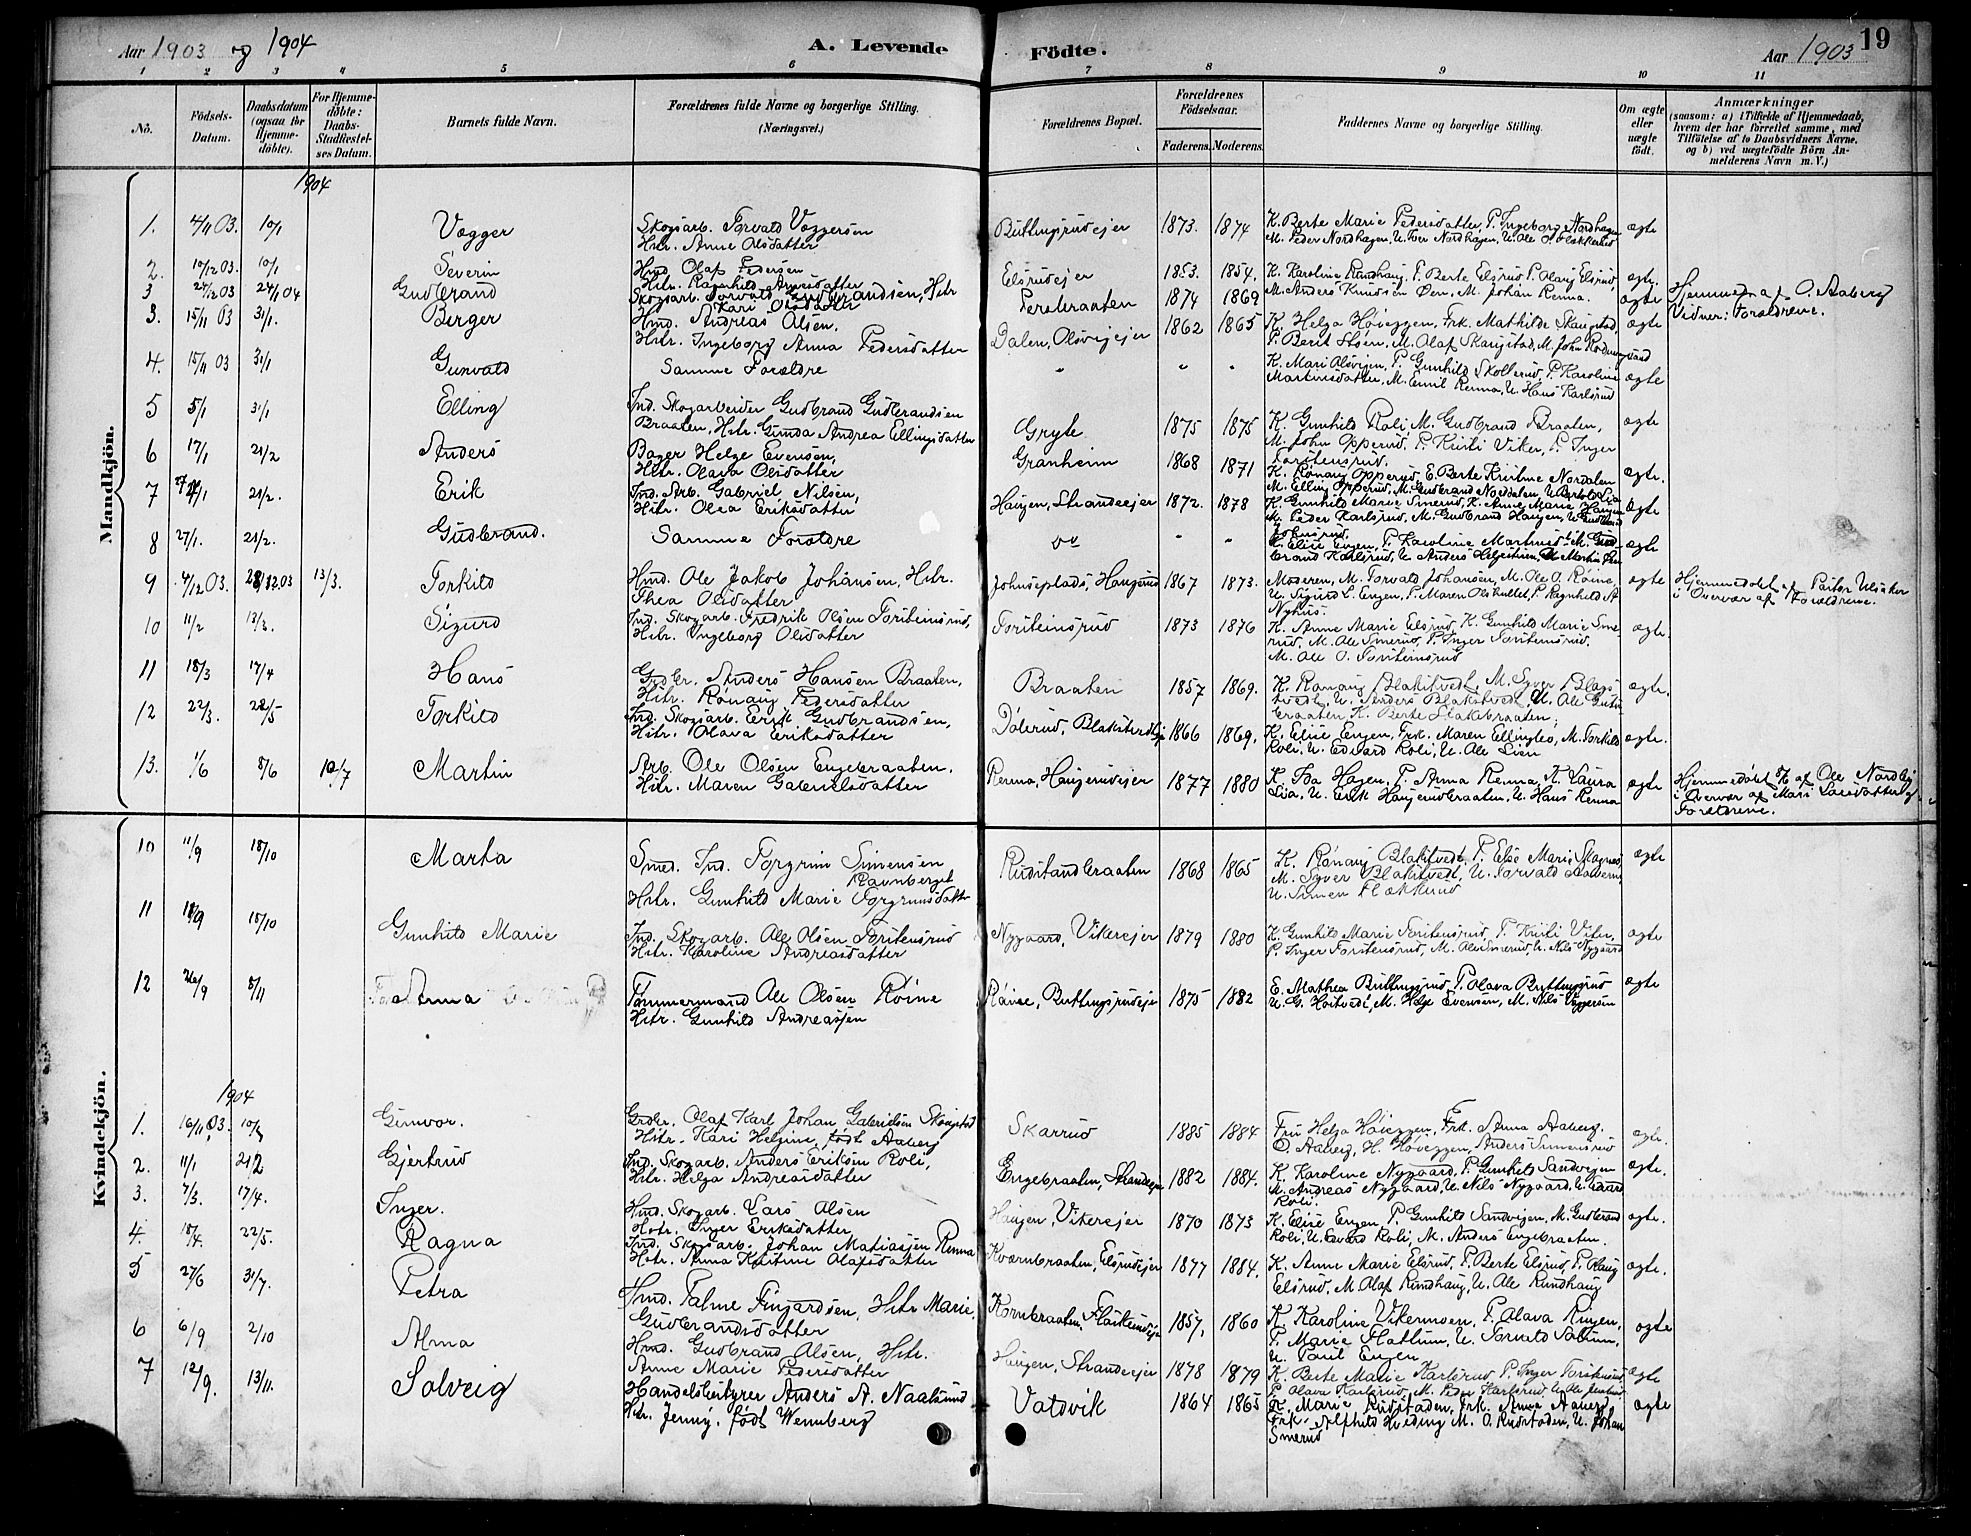 Aar 1903 og 1904
A. Levende
Födte.
Aar 1903
19
1 2 3 4 5 6 7 8 9 10 11
No.
Födsels-Datum.
Daabsdatum (ogsaa for Hjemme-döbte).
For Hjemme-döbte: Daabs-Stadfæstel-ses Datum.
Barnets fulde Navn.
Forældrenes fulde Navne og borgerlige Stilling. (Næringsvei.)
Forældrenes Bopæl.
Forældrenes Födselsaar.
Faderens. Moderens.
Faddernes Navne og borgerlige Stilling.
Om ægte eller uægte födt.
Anmærkninger (saasom: a) i Tilfælde af Hjemmedaab, hvem der har forrettet samme, med Tilföielse af to Daabsvidners Navne, og b) ved uægtefödte Börn An-melderens Navn m. V.)
Mandkjön.
1904
1. 4/11 03. 10/1 Vogger
Skogsarb. Torvald Voggersen
Hstr. Anne Olsdatter
Buttingsrudejer 1873. 1874
K. Berte Marie Pedersdatter, P. Ingeborg Nordhagen
M. Peder Nordhagen, U. Iver Nordhagen, U. Ole O. Flakkerud
ægte
2. 10/12 03. 10/1 Severin
Hmd. Olaf Pedersen
Hstr. Ragnhild Arnesdatter
Elsrudejer 1853. 1854.
K. Karoline Rundhaug, P. Berte Elsrud, P. Olaug Elsrud,
M. Anders Knudsen Øen, M. Johan Renna.
ægte.
3 27/12 03 24/1 04 Gudbrand
Skogsarb. Torvald Gudbrandsen, Hstr
Kari Olsdatter
Persbraaten 1874 1869
ægte
Hjemmed. af O. Aaberg
Vidner: Forældrene.
3. 15/11 03 31/1. Berger
Hmd. Andreas Olsen,
Hstr. Ingeborg Anna Pedersdatter
Dalen, Olsvigejer 1862 1865
K. Helga Høveggen, Frk. Mathilde Skaugstad,
P. Berit Steen, M. Olaf Skaugstad, M. John Rodningsand
ægte
4. 15/11 03 31/1 Gunvald
Samme Forældre
" " "
K. Mari Olsvigen, P. Gunhild Skollerud, P. Karoline
Martinsdatter, M. Emil Renna, U. Hans Karlsrud
ægte
5 5/1 31/1 Elling
Ind. Skogarbeider Gudbrand Gudbrandsen
Braaten, Hstr. Gunda Andrea Ellingsdatter
Gryte 1875 1875
K. Gunhild Roli M. Gudbrand Braaten,
M. John Opperud, P. Kristi Viker, P. Inger
Torstensrud.
ægte
6 17/1 21/2 Anders
Bager Helge Evensen,
Hstr. Olava Olsdatter
Granheim 1868 1871
K. Rønaug Opperud, E. Berte Kristine Nordalen
M. Elling Opperud, M. Gudbrand Nordalen, U. Bertol Lia
ægte.
7 27/1 21/2. Erik
Ind. Arb. Gabriel Nilsen,
Hstr. Olea Eriksdatter
Haugen, Strandeejer 1872. 1878
K. Gunhild Marie Smerud, K. Anne Marie Haugen
M. Peder Karlsrud, M. Gudbrand Haugen, U. Gudbrand
Johnsrud.
ægte
8 27/1. 21/2. Gudbrand.
Samme Forældre
do " "
K. Elise Engen, P. Karoline Martinsd. M. Gud-
brand Karlsrud, U. Anders Helgestuen, U. Martin
ægte
9 4/12 03. 28/12.03 13/3. Torkild
Hmd. Ole Jakob Johansen, Hstr.
Thea Olsdatter
Johnseplads, Haugsrud 1867 1873.
Moderen, M. Torvald Johansen, M. Ole O. Røine,
U. Sigurd L. Engen, P. Maren Olshullet, P. Ragnhild A
Nyhus.
ægte
Hjemmedøbt af Pastor Ulsaker
i Overvær af Forældrene.
10 11/2 13/3. Sigurd
Ind. Skogarb. Fredrik Olsen Torsteinsrud,
Hstr. Ingeborg Olsdatter
Torsteinsrud 1873 1876
K. Anne Marie Elsrud, K. Gunhild Marie Sme-
rud, M. Ole Smerud, P. Inger Torstensrud.
M. Ole O. Torsteinsrud
ægte.
11 18/3 17/4 Hans
Grdbr. Anders Hansen Braaten,
Hstr. Rønaug Pedersdatter
Braaten 1857 1869.
K. Rønaug Blakstvedt, M. Syver Blaks-
tvedt, U. Anders Blakstvedt, U. Ole Guln-
braaten K. Berte Slakibraaten.
ægte.
12 22/3. 22/5 Torkild
Ind. Skogsarb. Erik Gudbrandsen,
Hstr. Olava Eriksdatter
Dølerud, Blakstvedtej 1866 1869.
K. Elise Engen, Frk. Maren Ellingbø, M. Torkild
Roli, U. Edvard Roli, U. Ole Lien
ægte.
13. 1/6 8/6 10/7 Martin
Arb. Ole Olsen Engebraaten.
Hstr. Maren Gabrielsdatter
Renna, Haugerudejer 1877 1880
K. Ida Hagen, P. Anna Renna, K. Laura
Lia, U. Erik Haugerudbraaten, U. Hans Renna
ægte
Hjemmedøbt 8/6 af Ole Nordby
i Overvær af Mari Larsdatter og
Forældrene.
Kvindekjön.
10 11/9 18/10 Marta
Smed. Ind. Torgrim Simensen
Ravnberget
Hstr. Gunhild Marie Torgrimsdatter
Rudstandbraaten 1868 1865
K. Rønaug Blakstvedt, P. Else Marie Skagnæs
M. Syver Blakstvedt, U. Torvald
U. Simen Flakkerud
ægte
11 18/9 18/10 Gunhild Marie
Ind. Skogarb. Ole Olsen Torstensrud
Hstr. Karoline Andreasdatter
Nygaard, Vikerejer 1879 1880
K. Gunhild Marie Torstensrud, P. Kristi Viker,
P. Inger Torstensrud, M. Ole Smerud, U. Nils Nygaard
ægte
12 26/9 8/11 Anna
Tømmermand Ole Olsen Röine
Hstr. Gunhild Andreassen
Röine, Buttingsrudeje 1875 1882
E. Mathea Buttingsrud P. Olava Buttingsrud
U. G. Hoitvedt, M. Helge Evensen, M. Nils Viggersen
ægte
1904
1. 16/11 03. 10/1 Gunvor.
Grdbr. Olaf Karl Johan Gabrielsen Skougstad
Hstr. Kari Helgine, født Aaberg
Skarrud 1885 1884
Fru Helga Høveggen, Frk. Anna Aaberg.
O. Aaberg, H. Høveggen, Anders Simensrud
ægte.
2. 11/1 21/2 Gjertrud
Ind. Skogarb. Anders Eriksen Roli,
Hstr. Helga Andreasdatter
Engebraaten, Strandejer 1882 1884.
K. Karoline Nygaard, P. Gunhild Sandvigen
M. Andreas Nygaard, U. Nils Nygaard, U. Edvard
Roli.
ægte.
3. 7/3. 17/4. Inger.
Hmd. Skogarb. Lars Olsen
Hstr. Inger Eriksdatter
Haugen, Vikerejer 1870 1873
K. Elise Engen, P. Gunhild Sandvigen, M. Gudbrand
Roli, U. Edvard Roli, M. Anders Engebraaten.
ægte.
4. 18/4. 22/5. Ragna
Ind. Skogarb. Johan Matiassen Renna
Hstr. Anna Kristine Olafsdatter
Kværnbraaten, Elsrudejer 1877 1884.
K. Anne Marie Elsrud, P. Berte Elsrud, P. Olaug
Elsrud, M. Olaf Rundhaug, U. Ole Rundhaug
ægte.
5 27/6 31/7. Petra
Hmd. Palme Fingardsen, Hstr Marie
Gudbrandsdatter
Kornbraaten, 1857, 1860
K. Karoline Vikermoen, P. Olava Ringen,
P. Marie Flattum, U. Torvald Sollum,
U. Paul Engen
ægte
6 6/9 2/10 Alma
Hmd. Gudbrand Olsen, Hstr.
Anne Marie Pedersdatter
Haugen, Strandeejer 1878 1879
K. Berte Marie Karlsrud P. Inger Torstensrud
P. Olava Karlsrud, M. Peder Karlsrud,
ægte
7 12/9. 13/11. Solveig
Handelsbestyrer Anders A. Naalsund
Hstr. Jenny, født Wennberg
Vatsvik 1864 1865
K. Marie Rudstaden, Frk. Anna Aaberg,
Frk. Alfhild Hveding M. O. Rudstaden, U. Johan
Smerud
ægte